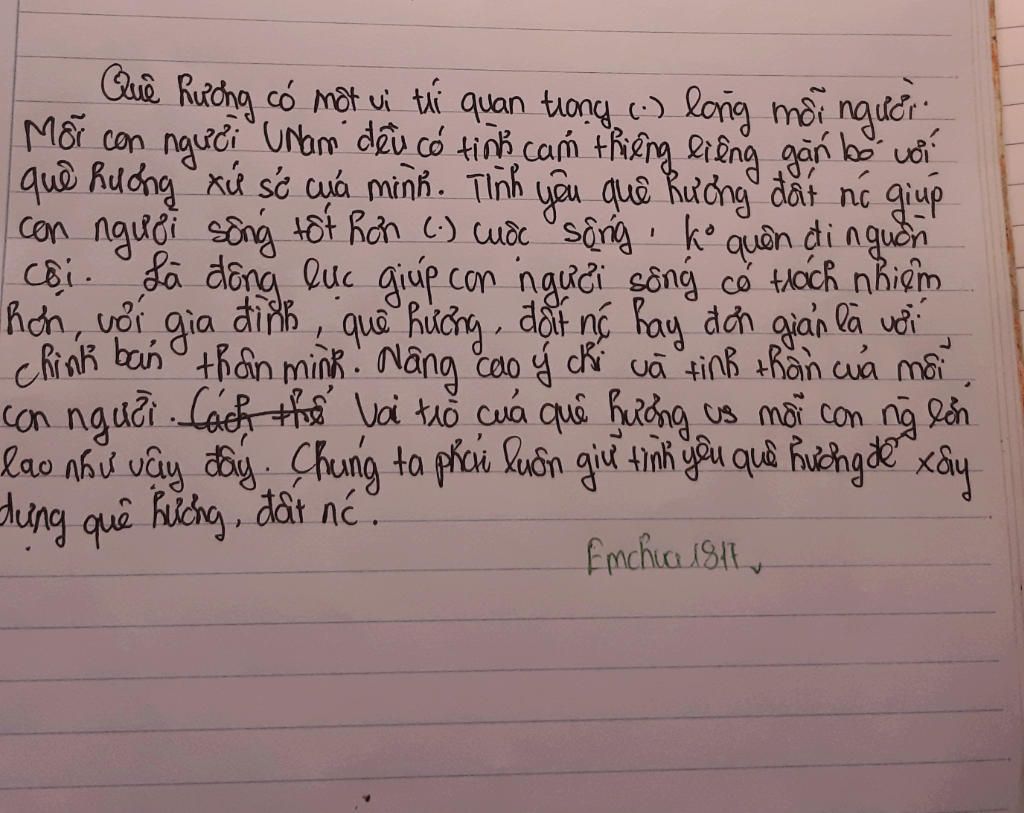 Quê hương có một vị trí quan trọng (.) lòng mỗi người.
Mỗi con người VNam đều có tình cảm thiêng liêng gắn bó với
quê hương xứ sở của mình. Tình yêu quê hương đất nc giúp
con người sống tốt hơn (.) cuộc sống, ko quên đi nguồn
cội. Là động lực giúp con người sống có trách nhiệm
hơn, với gia đình, quê hương, đất nc hay đơn giản là với
chính bản thân mình. Nâng cao ý chí và tinh thần của mỗi
con người. Cách thể Vai trò của quê hương vs mỗi con ng lớn
lao như vậy đấy. Chúng ta phải luôn giữ tình yêu quê hương để xây
dựng quê hương, đất nc.